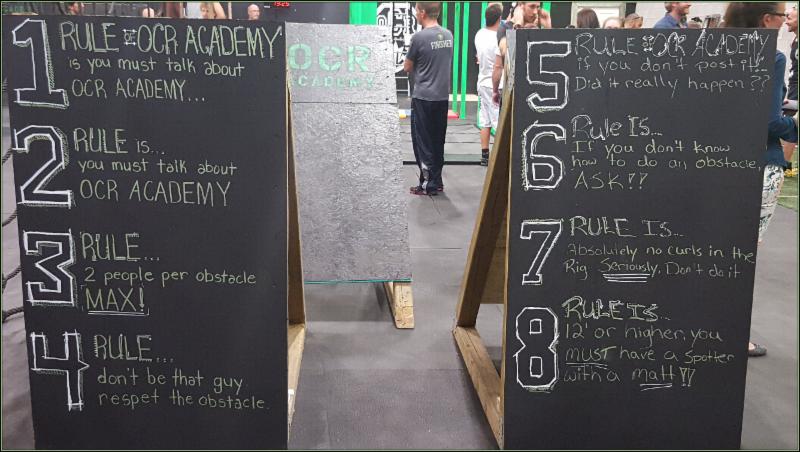 1 RULE OF OCR ACADEMY
is you must talk about
OCR ACADEMY...
2 RULE is...
you must talk about
OCR ACADEMY
3 RULE...
2 people per obstacle
MAX!
4 RULE...
don't be that guy
respet the obstacle.
OCR
ACADEMY
FINISHER
5 RULE OF OCR ACADEMY
if you don't post it!!
Did it really happen??
6 Rule Is...
If you don't know
how to do an obstacle
ASK!!
7 RULE IS...
Absolutely no curls in the
Rig Seriously. Don't do it
8 RULE IS...
12' or higher, you
MUST have a spotter
with a matt!!